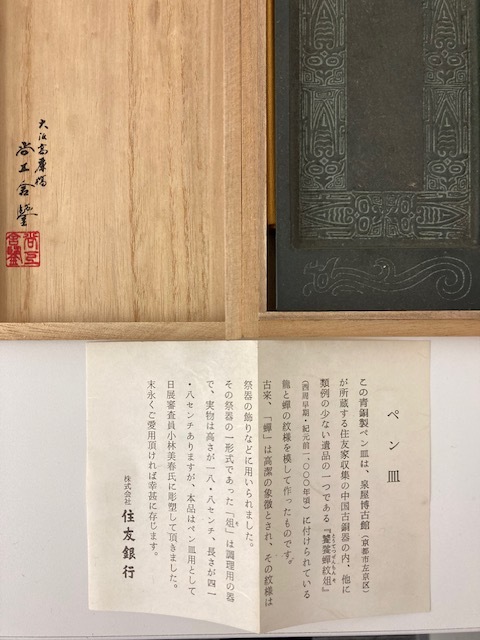 大阪高麗橋
尚工舎鑒
尚工
舎鑒
ペン皿
この青銅製ペン皿は、泉屋博古館（京都市左京区）
が所蔵する住友家収集の中国古銅器の内、他に
類例の少ない遺品の一つである『饕餮蟬紋俎』
とうてつぜんもんそ
（西周早期・紀元前一、〇〇〇年頃）に付けられている
龍と蟬の紋様を模して作ったものです。
古来、「蟬」は高潔の象徴とされ、その紋様は
祭器の飾りなどに用いられました。
その祭器の一形式であった「俎」は調理用の器
で、実物は高さが一八・八センチ、長さが四一
・八センチありますが、本品はペン皿用として
日展審査員小林美春氏に彫塑して頂きました。
末永くご愛用頂ければ幸甚に存じます。
株式会社
住友銀行